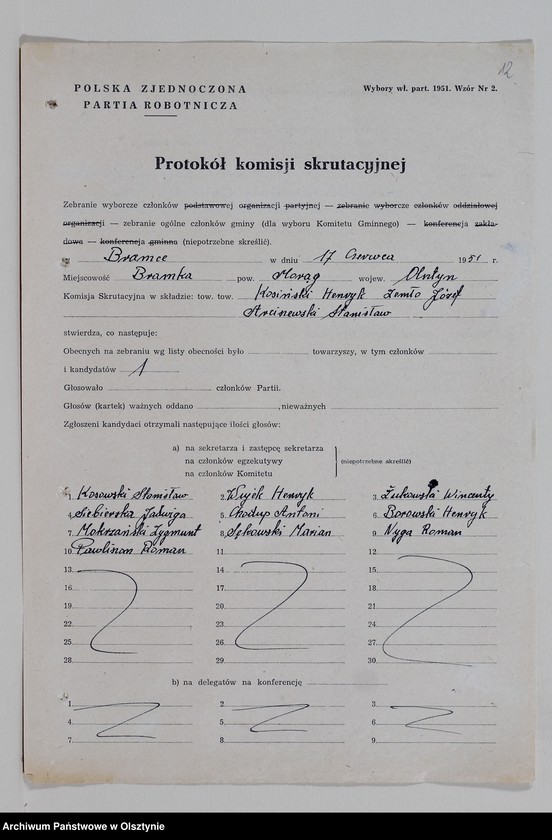 12
POLSKA ZJEDNOCZONA
PARTIA ROBOTNICZA
Wybory wł. part. 1951. Wzór Nr 2.
Protokół komisji skrutacyjnej
Zebranie wyborcze członków podstawowej organizacji partyjnej — zebranie wyborcze członków oddziałowej
organizacji — zebranie ogólne członków gminy (dla wyboru Komitetu Gminnego) — konferencja zakła-
dowa — konferencja gminna (niepotrzebne skreślić).
w Bramce w dniu 17 Czerwca 1951 r.
Miejscowość Bramka pow. Morąg wojew. Olsztyn
Komisja Skrutacyjna w składzie: tow. tow. Kosiński Henryk Zemło Józef
Arciszewski Stanisław
stwierdza, co następuje:
Obecnych na zebraniu wg listy obecności było towarzyszy, w tym członków
i kandydatów 1
Głosowało członków Partii.
Głosów (kartek) ważnych oddano , nieważnych
Zgłoszeni kandydaci otrzymali następujące ilości głosów:
a) na sekretarza i zastępcę sekretarza
na członków egzekutywy (niepotrzebne skreślić)
na członków Komitetu
1. Kosowski Stanisław 2. Wujek Henryk 3. Żukowski Wincenty
4. Siebierska Jadwiga 5. Chodup Antoni 6. Borowski Henryk
7. Mokrzański Zygmunt 8. Sękowski Marian 9. Nyga Roman
10. Pawlinan Roman 11. 12
13. 14 15.
16. 17. 18.
19. 20. 21.
22. 23. 24.
25. 26. 27.
28. 29. 30.
b) na delegatów na konferencję
1. 2 3.
4. 5. 6.
7. 8. 9.
Archiwum Państwowe w Olsztynie